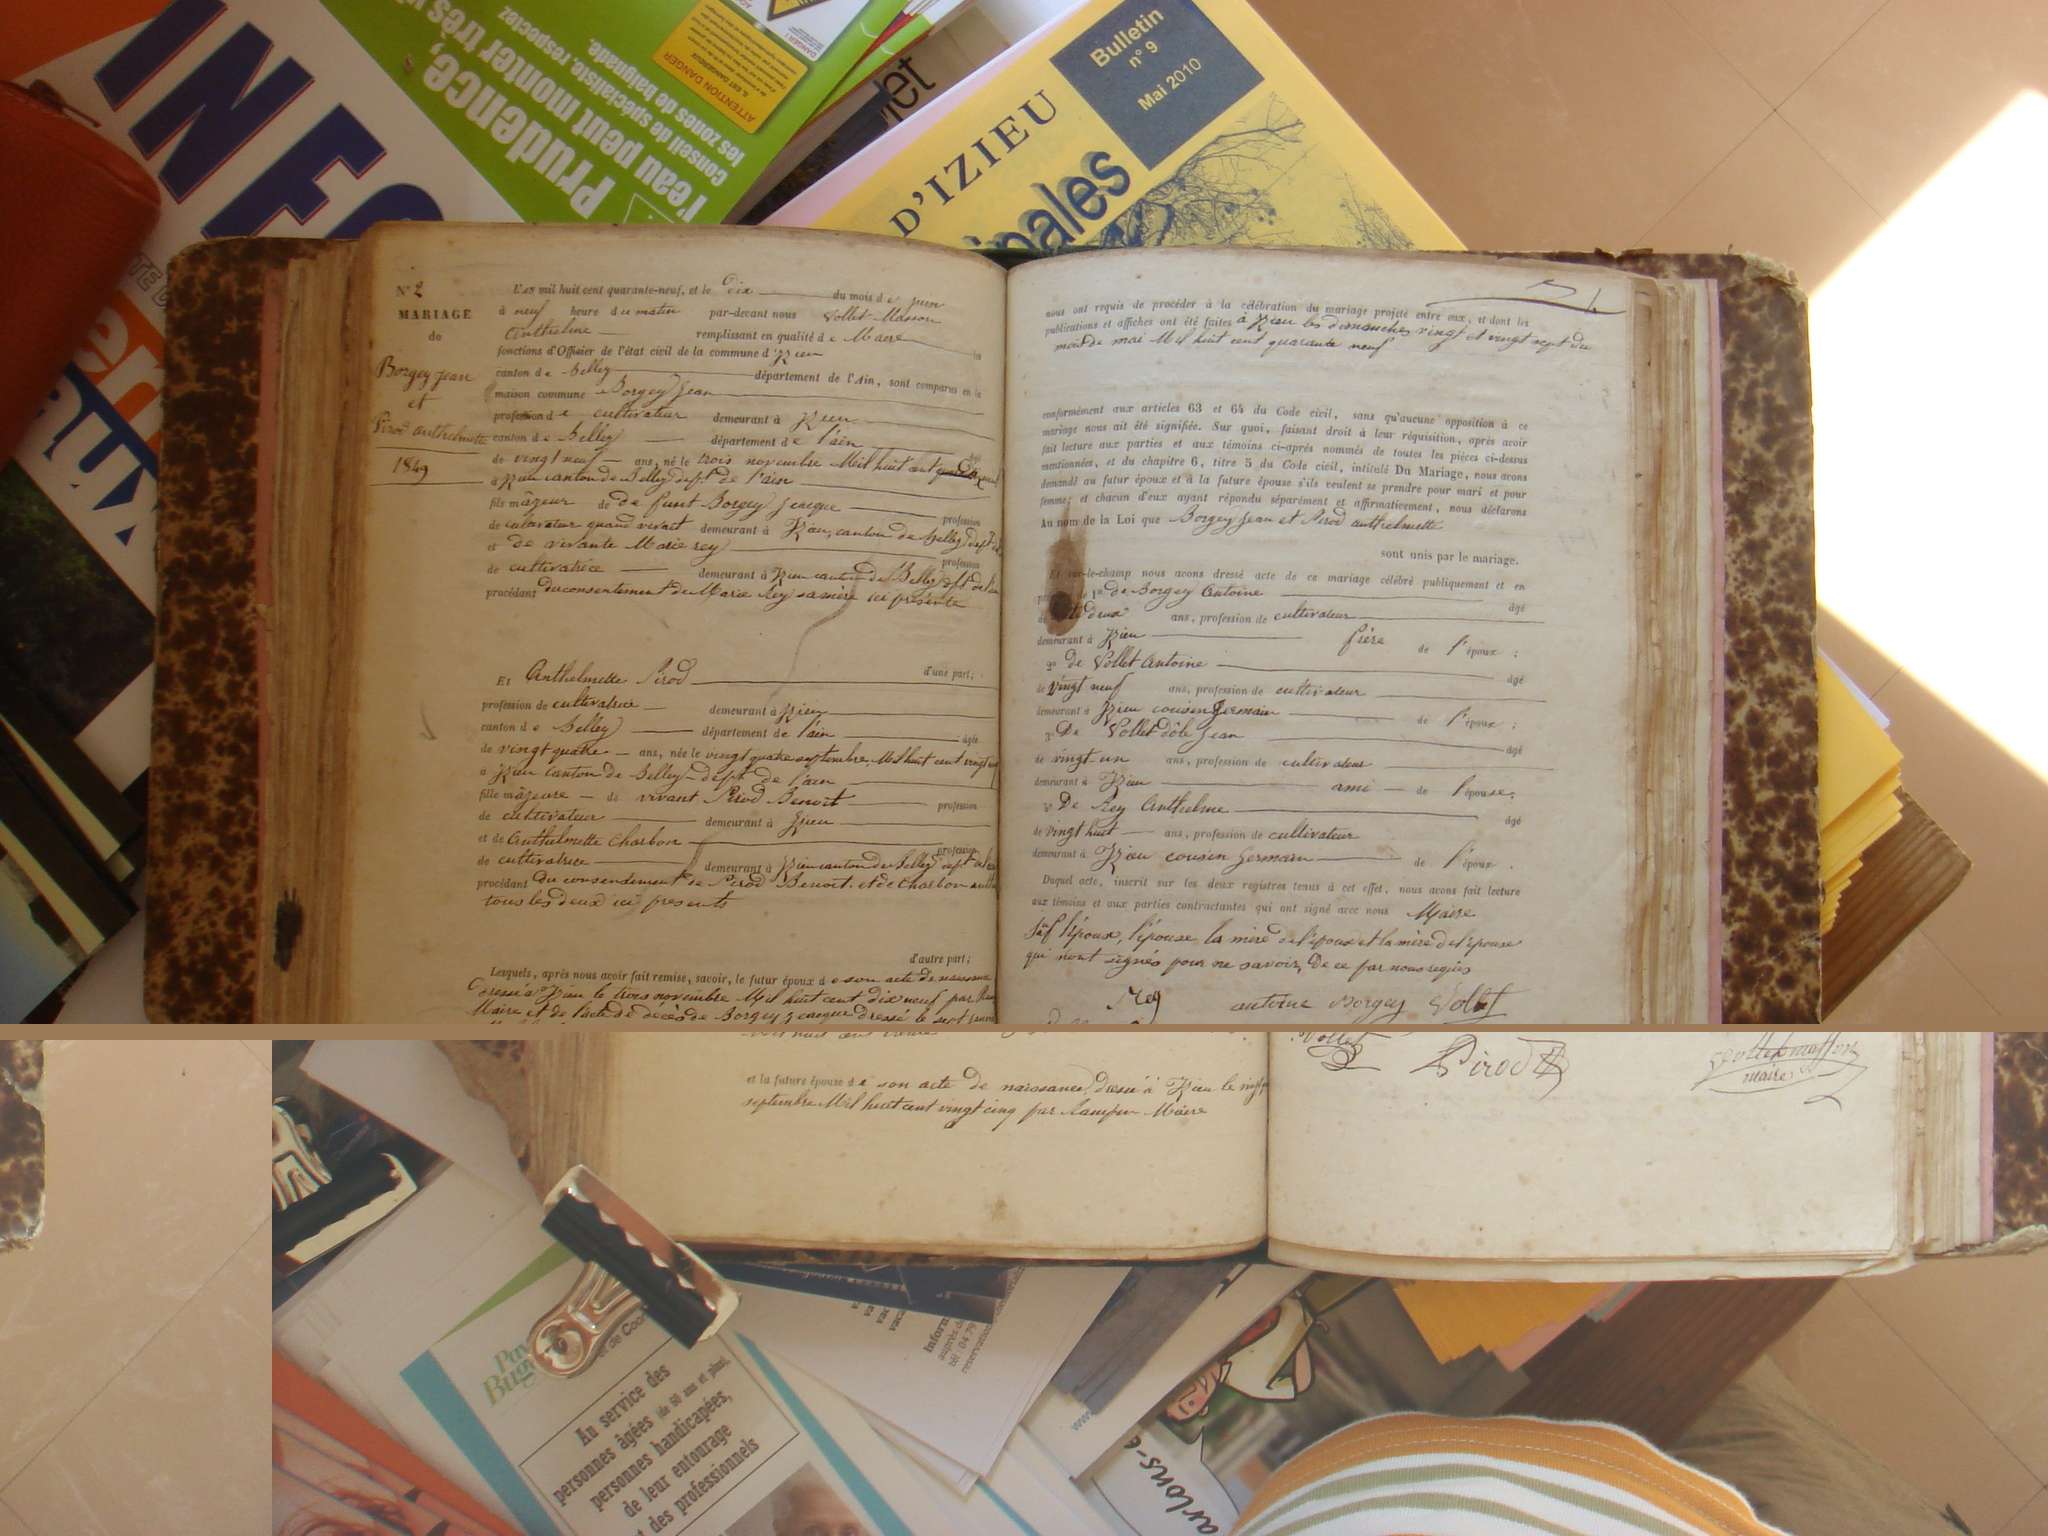 INFO
Prudence,
l'eau peut monter très v
Conseil de spécialiste, respectez
les zones de baignade.
ATTENTION DANGER
Bulletin
n° 9
Mai 2010
D'IZIEU
ipales
N° 2
MARIAGE
de
Borgey jean
et
Pirod anthelmette
1849
L'an mil huit cent quarante-neuf, et le dix du mois de juin
à neuf heure du matin par-devant nous Vollet-Masson
Anthelme remplissant en qualité de Maire les
fonctions d'Officier de l'état civil de la commune d'Izieu
canton de Belley département de l'Ain, sont comparus en la
maison commune Borgey Jean
profession de cultivateur demeurant à Izieu
canton de Belley département de l'ain
de vingt neuf ans, né le trois novembre Mil huit cent
à Izieu canton de Belley dept de l'ain
fils majeur de defunt Borgey Jacque profession
de cultivateur quand vivait demeurant à Izieu, canton de Belley dept
et de vivante Marie rey profession
de cultivatrice demeurant à Izieu canton de Belley dept de l'ain
procédant du consentement de Marie Rey sa mère ici présente
d'une part;
Et Anthelmette Pirod
profession de cultivatrice demeurant à Izieu
canton de Belley département de l'ain âgée
de vingt quatre ans, née le vingt quatre septembre Mil huit cent vingt
à Izieu canton de Belley dept de l'ain
fille majeure de vivant Pirod Benoit profession
de cultivateur demeurant à Izieu
et de Anthelmette Charbon profession
de cultivatrice demeurant à Izieu canton de Belley dept
procédant du consendement de Pirod Benoit et de Charbon
tous les deux ici presents
d'autre part;
Lesquels, après nous avoir fait remise, savoir, le futur époux de son acte de naissance
dressé à Izieu le trois novembre Mil huit cent dix neuf par
Maire et de l'acte de décès de Borgey Jacque dressé le sept
et la future épouse de son acte de naissance dressé à Izieu le
septembre Mil huit cent vingt cinq par Maire
nous ont requis de procéder à la célébration du mariage projeté entre eux, et dont les
publications et affiches ont été faites à Izieu les dimanches vingt et vingt sept du
mois de mai Mil huit cent quarante neuf
conformément aux articles 63 et 64 du Code civil, sans qu'aucune opposition à ce
mariage nous ait été signifiée. Sur quoi, faisant droit à leur réquisition, après avoir
fait lecture aux parties et aux témoins ci-après nommés de toutes les pièces ci-dessus
mentionnées, et du chapitre 6, titre 5 du Code civil, intitulé Du Mariage, nous avons
demandé au futur époux et à la future épouse s'ils veulent se prendre pour mari et pour
femme; et chacun d'eux ayant répondu séparément et affirmativement, nous déclarons
Au nom de la Loi que Borgey Jean et Pirod anthelmette
sont unis par le mariage.
Et sur-le-champ nous avons dressé acte de ce mariage célébré publiquement et en
de Borgey Antoine âgé
deux ans, profession de cultivateur
demeurant à Izieu frère de l'époux ;
2° de Vollet Antoine âgé
de vingt neuf ans, profession de cultivateur
demeurant à Izieu cousin germain de l'époux ;
3° De Vollet dôle Jean âgé
de vingt-un ans, profession de cultivateur
demeurant à Izieu ami de l'épouse;
4° De Rey Anthelme âgé
de vingt huit ans, profession de cultivateur
demeurant à Izieu cousin germain de l'époux .
Duquel acte, inscrit sur les deux registres tenus à cet effet, nous avons fait lecture
aux témoins et aux parties contractantes qui ont signé avec nous Maire
sauf l'époux, l'épouse la mère de l'époux et la mère de l'épouse
qui n'ont signés pour ne savoir, De ce par nous requis
Rey antoine Borgey Vollet
Vollet Pirod Vollet masson
maire
Pays
Bugey
Au service des
personnes âgées (de 60 ans et plus),
personnes handicapées,
de leur entourage
et des professionnels
arlons-e